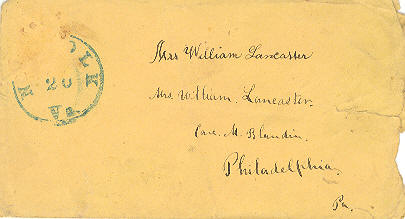 OLK
20
Va
N
Mrs William Lancaster
Mrs. William. Lancaster.
Care. M. Blandin.
Philadelphia
Pa.